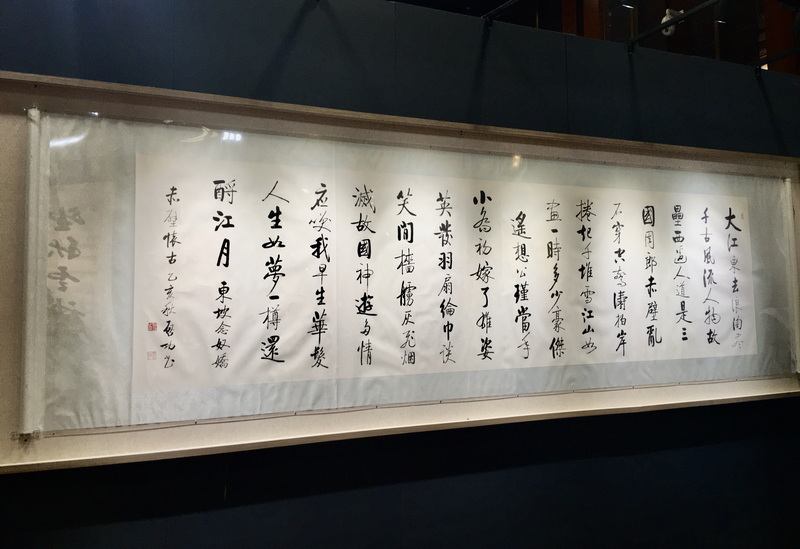 大江東去浪淘盡
千古風流人物故
壘西邊人道是三
國周郎赤壁亂
石穿空驚濤拍岸
捲起千堆雪江山如
畫一時多少豪傑
遙想公瑾當年
小喬初嫁了雄姿
英發羽扇綸巾談
笑間檣艣灰飛烟
滅故國神遊多情
應笑我早生華髮
人生如夢一樽還
酹江月 東坡念奴嬌
赤壁懷古 乙亥秋 啟功書